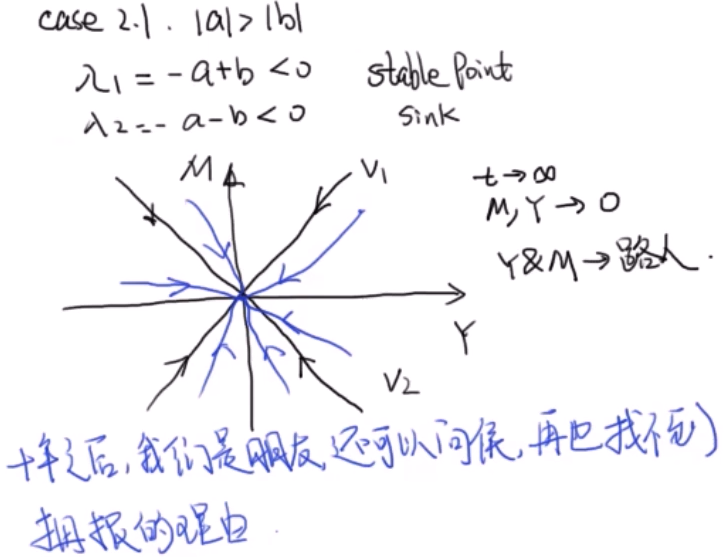 case 2.1. |a|>|b|
λ1 = -a+b < 0 stable Point
λ2 = -a-b < 0 sink
M V1
t→∞
M,Y → 0
Y&M → 路人.
Y
V2
十年之后,我们是朋友,还可以问候,再也找不到
拥抱的理由.